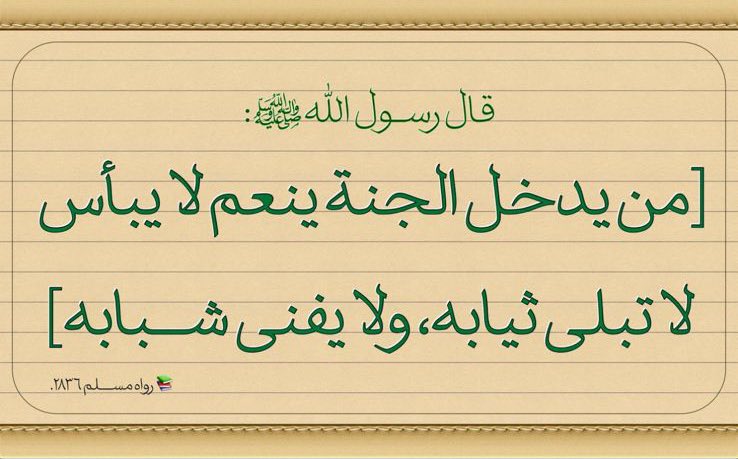 قال رسول الله ﷺ:
[من يدخل الجنة ينعم لا يبأس
لا تبلى ثيابه، ولا يفنى شبابه]
رواه مسلم ٢٨٣٦.